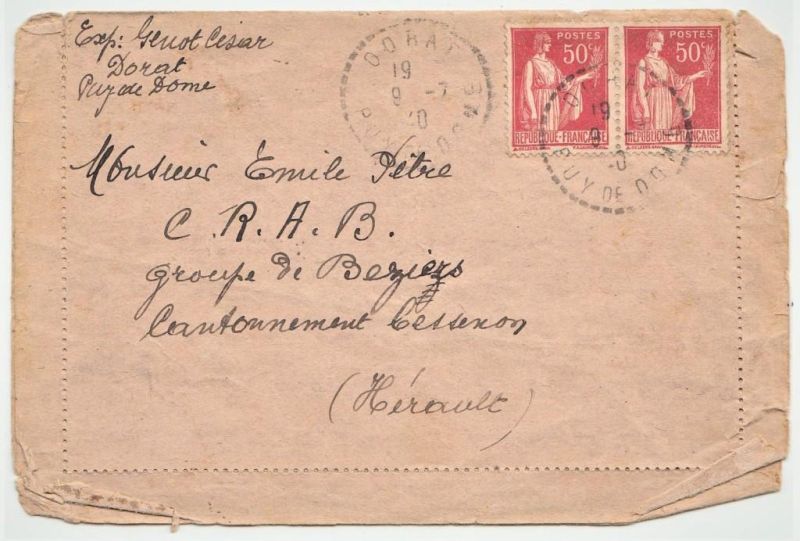 Exp: Genot César
Dorat
Puy de Dome
DORAT
19
9 -7
40
PUY DE DOME
POSTES
50c
REPUBLIQUE-FRANÇAISE
POSTES
50c
REPUBLIQUE-FRANÇAISE
19
9
PUY DE DOME
Monsieur Émile Pètre
C. R. A. B.
groupe de Beziers
Cantonnement Cessenon
(Hérault)